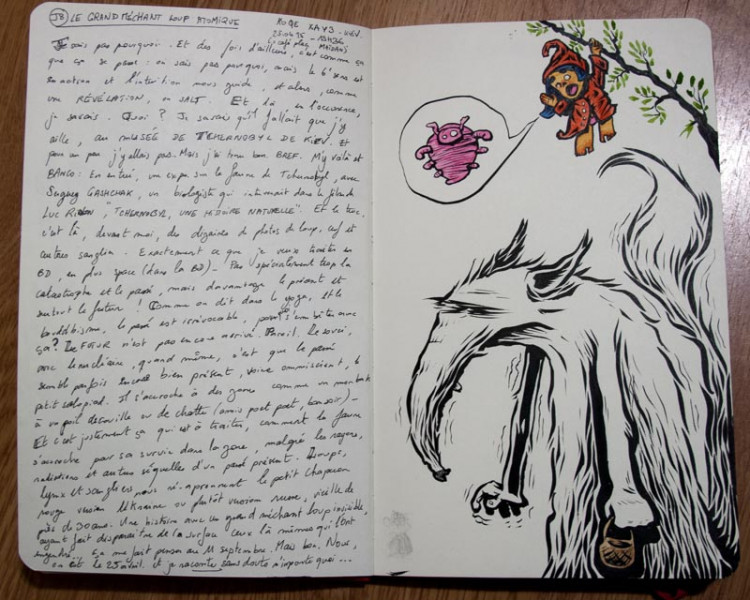 J8 LE GRAND MÉCHANT LOUP ATOMIQUE
Je sais pas pourquoi. Et des fois d'ailleurs, c'est comme ça
que ça se passe : on sais pas pourquoi, mais le 6e sens est
en action et l'intention nous guide, et alors, comme
une RÉVÉLATION, on SAIT. Et là en l'occurence,
je savais. Quoi ? Je savais qu'il fallait que j'y
aille, au MUSÉE DE TCHERNOBYL DE KIEV. Et
pour un peu j'y allais pas. Mais j'ai tenu bon. BREF. M'y voilà et
BANG : En entrée, un expo sur la faune de Tchernobyl, avec
GASHCHAK, un biologiste qui intervenait dans le film de
Luc "TCHERNOBYL, UNE HISTOIRE NATURELLE". Et le truc,
c'est là, devant moi, des dizaines de photos de loup, cerf et
autres sanglier. Exactement ce que je veux traiter en
BD, en plus space (dans la BD) - Pas spécialement trop la
catastrophe et le passé, mais davantage le présent et
surtout le futur ! Comme on dit dans le yoga, et le
bouddhisme, le passé est irrévocable, avec
ça ? Le FUTUR n'est pas encore arrivé. Pareil. Le souci,
avec le nucléaire, quand même, c'est que le passé
semble parfois encore bien présent, voire omniscient, le
petit salopiaud. Il s'accroche à des gens comme un
à un poil de ou de chatte (amis poet poet, bonsoir) -
Et c'est justement ça qui est à traiter, comment la faune
s'accroche par sa survie dans la zone, malgré les rayons,
radiations et autres séquelles d'un passé présent. Loups,
lynx et sangliers nous ré-apprennent le petit chaperon
rouge version Ukraine ou plutôt version russe, vieille de
près de 30 ans. Une histoire avec un grand méchant loup invisible,
ayant fait disparaître de la surface ceux là mêmes qui l'ont
engendré. Ça me fait penser au 11 septembre. Mais bon. Nous,
on est le 25 avril. Et je raconte sans doute n'importe quoi ...